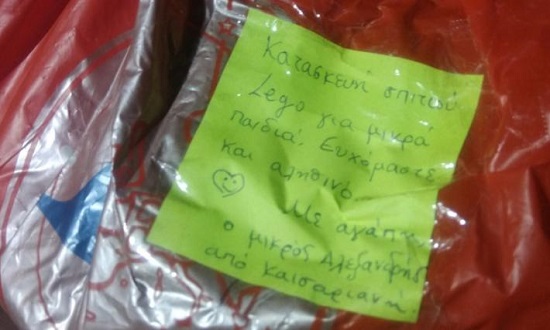 Κατασκευή σπιτιού
Lego για μικρά
παιδιά. Ευχόμαστε
και αληθινό
Με αγάπη
ο μικρός Αλέξανδρος
από Καισαριανη